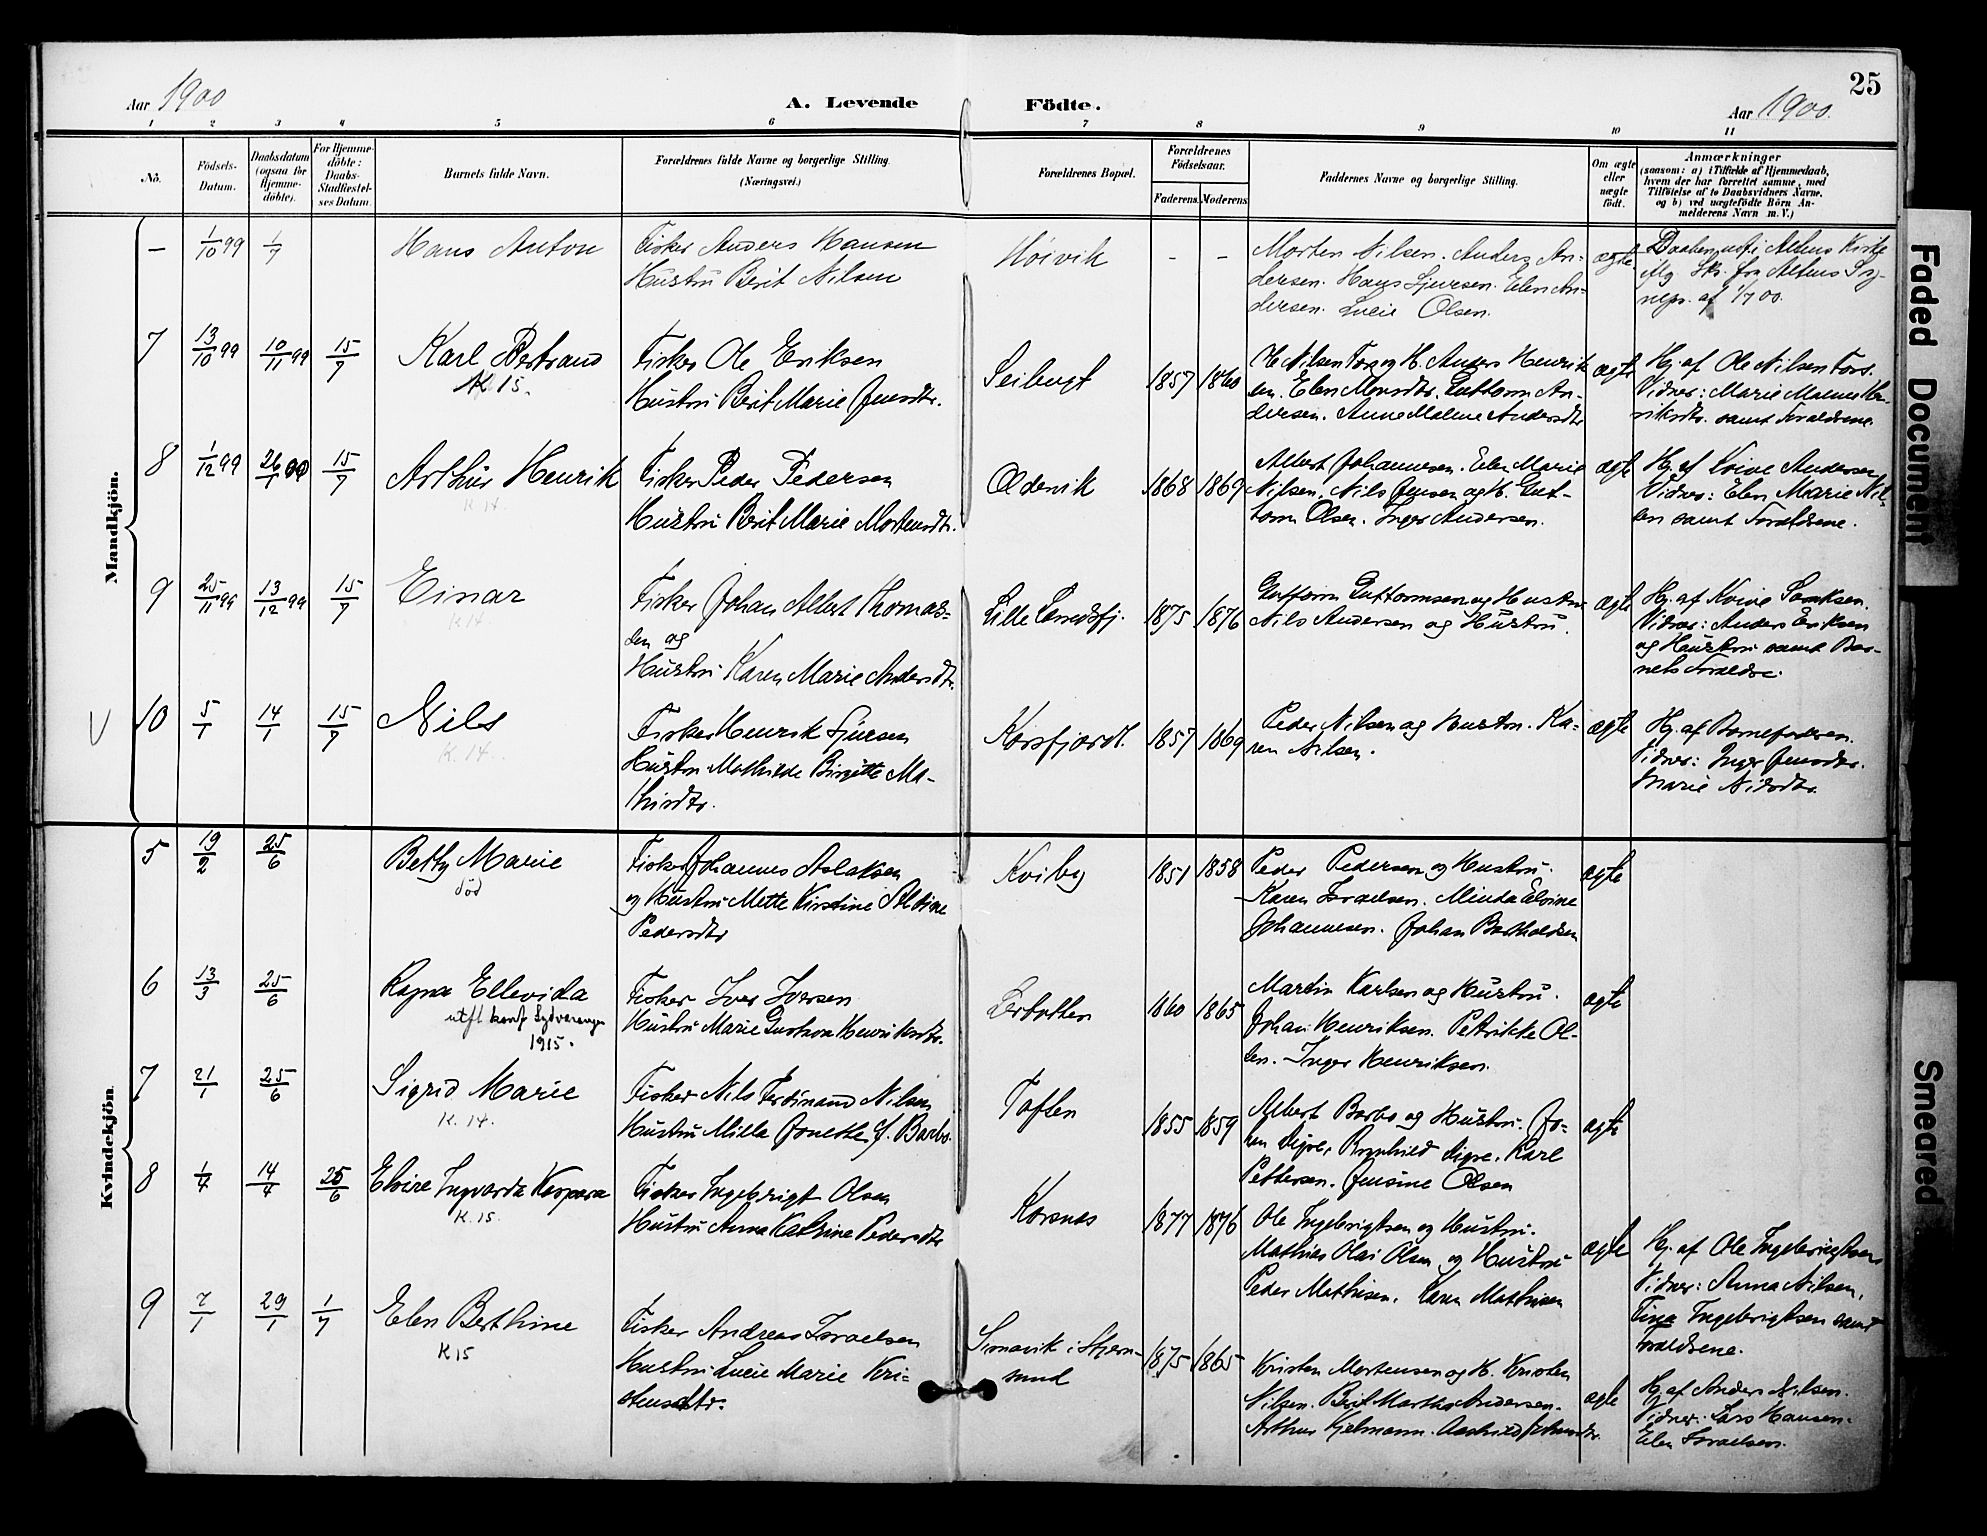 25
Aar 1900
A. Levende Födte.
Aar 1900.
1 2 3 4 5 6 7 8 9 10 11
No.
Födsels-
Datum.
Daabsdatum
(ogsaa for
Hjemme-
döbte).
For Hjemme-
döbte:
Daabs-
Stadfæstel-
ses Datum.
Barnets fulde Navn.
Forældrenes fulde Navne og borgerlige Stilling.
(Næringsvei.)
Forældrenes Bopæl.
Forældrenes
Födselsaar.
Faderens. Moderens.
Faddernes Navne og borgerlige Stilling.
Om ægte
eller
uægte
født.
Anmærkninger
(saasom: a) i Tilfælde af Hjemmedaab,
hvem der har forrettet samme, med
Tilföielse af to Daabsvidners Navne,
og b) ved uægtefödte Börn An-
melderens Navn m. V.)
Mandkjön.
— 1/10 99 1/7 Hans Anton
Fisker Anders Hansen
Hustru Berit Nilsen
Høivik - -
Morten Nilsen. Anders An-
dersen. Hans Sjursen. Elen An-
dersen. Lucie Olsen.
ægte
Altens Kirke
fra Altens Sog-
nepr. af 1/7 00.
7 13/10 99 10/11 99 15/7 Karl Bertrand
K 15.
Fisker Ole Eriksen
Hustru Berit Marie Jensdtr.
Seibugt 1857 1860
O. Nilsen Fors og H. Anders Henrik
sen. Elen Monsdtr. Guttorm An-
dersen. Anne Malene Andersdtr
ægte
Hj. af Ole Nilsen Fors.
Vidner: Marie Malene Hen-
riksdtr. samt Forældrene.
8 1/12 99 26/1 00 15/7 Arthur Henrik
K 14
Fisker Peder Pedersen
Hustru Berit Marie Mortensdtr.
1868 1869
Albert Johannesen. Elen Marie
Nilsen. Nils Jensen og H. Gut-
torm Olsen. Inger Andersen.
ægte
Hj. af Andersen
Vidner: Elen Marie Nil-
sen samt Forældrene.
9 25/11 99 13/12 99 15/7 Einar
K 14.
Fisker Johan Albert Thomas-
sen og
Hustru Karen Marie Andersdtr.
Lille Lerredsfj. 1875 1876
Guttorm Guttormsen og Hustru
Nils Andersen og Hustru.
ægte
Hj. af
Vidner: Anders Eriksen
og Hustru samt Bar-
nets Forældre.
10 5/1 14/1 15/7 Nils
K. 14.
Fisker Henrik Sjursen
Hustru Mathilde Birgitte Ma-
thisdtr.
Korsfjord. 1857 1869
Peder Nilsen og Hustru. Ka-
ren Nilsen.
ægte
Hj. af Barnefaderen.
Vidner: Inger Jensdtr.
Marie Nilsdtr.
Kvindekjön
5 19/2 25/6 Betty Marie
død
Fisker Johannes Aslaksen
og Hustru Mette Kirstine
Pedersdtr
Kviby 1851 1858
Peder Pedersen og Hustru.
Karen Israelsen. Minda Elvine
Johannesen. Johan Bartholdsen
ægte
6 13/3 25/6 Ragna Ellevida
utfl. konf. Sydvaranger
1915.
Fisker Iver Iversen
Hustru Marie Gustava Henriksdtr.
1860 1865
Martin Karlsen og Hustru.
Johan Henriksen. Petrikke Ol-
sen. Inger Henriksen.
ægte
7 21/1 25/6 Sigrid Marie
K. 14.
Fisker Nils Ferdinand Nilsen
Hustru Milla Jonette f. Barbo.
Toften 1855 1859
Albert Barbo og Hustru. Jo-
han Digre, Ragnhild Digre. Karl
Pettersen. Jensine Olsen
ægte
8 1/4 14/4 25/6 Elvire Ingvarda Kaspara
K. 15.
Fisker Ingebrigt Olsen
Hustru Anna Kathrine Pedersdtr
Korsnes 1877 1876
Ole Ingebrigtsen og Hustru.
Mathias Olai Olsen og Hustru
Peder Mathisen. Karen Mathisen
ægte
Hj. af Ole Ingebrigtsen
Vidner: Anna Nilsen,
Tina Ingebrigtsen samt
Forældrene.
9 7/1 29/1 1/7 Elen Berthine
K 15
Fisker Andreas Israelsen
Hustru Lucie Marie Kri-
stensdtr.
Simavik i Stjern-
sund 1875 1865
Kristen Mortensen og H. Kristen
Nilsen. Berit Martha Andersen.
Arthur Kjelmann.
ægte
Hj. af Anders Nilsen.
Vidner: Lars Hansen.
Elen Israelsen.
Faded Document
Smeared